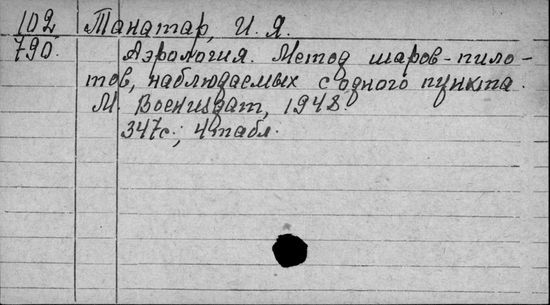 102 Танатар, И. Я.
790. Аэрология. Метод шаров-пило-
тов, наблюдаемых с одного пункта.
М. Воениздат, 1948.
347с.; 4 табл.